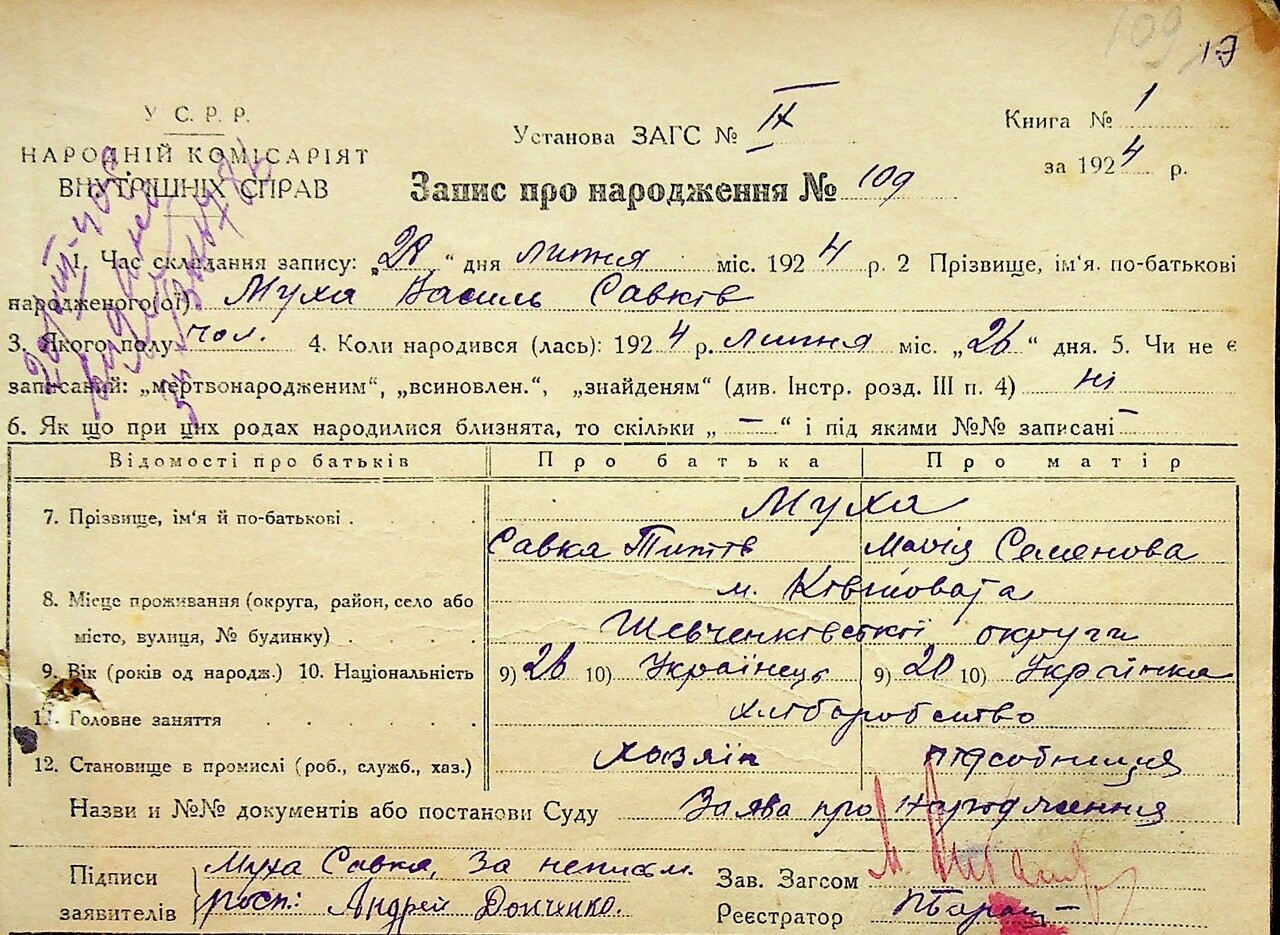 109 19
У С. Р. Р.
НАРОДНІЙ КОМІСАРІЯТ
ВНУТРІШНІХ СПРАВ
Установа ЗАГС № IX
Книга № 1
за 1924 р.
Запис про народження № 109
1. Час складання запису: „28“ дня липня міс. 1924 р. 2 Прізвище, ім'я. по-батькові
народженого(ої) Муха Василь Савків
3. Якого полу чол. 4. Коли народився (лась): 1924 р. липня міс. „26“ дня. 5. Чи не є
записаний: „мертвонародженим“, „всиновлен.“, „знайденям“ (див. Інстр. розд. III п. 4) ні
6. Як що при цих родах народилися близнята, то скільки „ — “ і під якими №№ записані —
Відомості про батьків Про батька Про матір
7. Прізвище, ім'я й по-батькові Муха
Савка Титів Марія Семенова
8. Місце проживання (округа, район, село або м. Ківшовата
місто, вулиця, № будинку) Шевченківської округи
9. Вік (років од народж.) 10. Національність 9) 26 10) Українець 9) 20 10) Українка
11. Головне заняття хліборобство
12. Становище в промислі (роб., служб., хаз.) хазяїн підсобниця
Назви и №№ документів або постанови Суду Заява про народження
Підписи Муха Савка, За неписьм.
заявителів росп: Андрей Донченко.
Зав. Загсом
Реєстратор